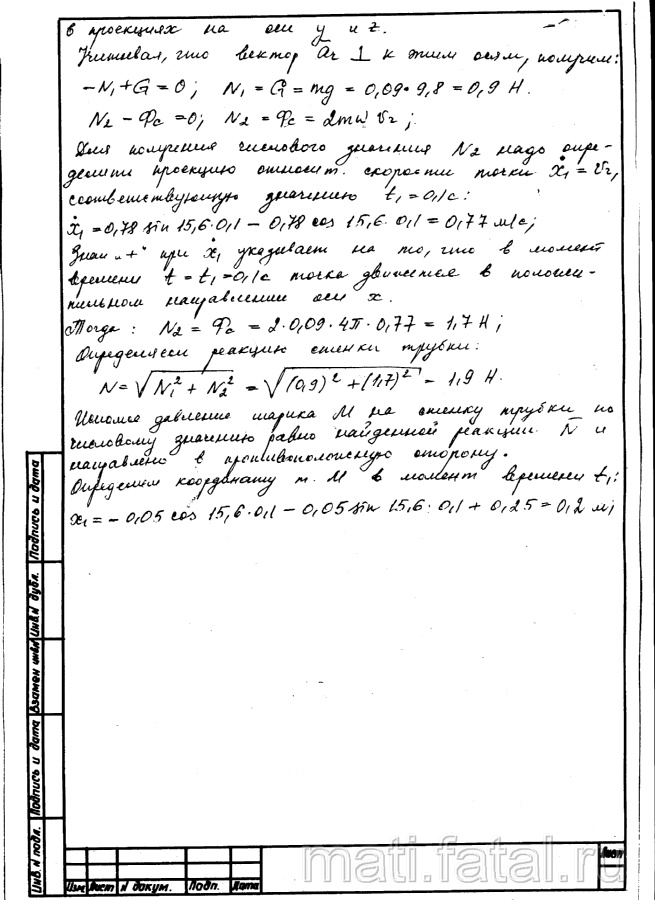 в проекциях на оси y и z.
Учитывая, что вектор ār ⊥ к этим осям, получим:
-N₁+G=0; N₁=G=mg=0,09·9,8=0,9 Н.
N₂-Фc=0; N₂=Фc=2mωVr;
Для получения числового значения N₂ надо опре-
делить проекцию относит. скорости точки ẋ₁=Vr,
соответствующую значению t₁=0,1с:
ẋ₁=0,78 sin 15,6·0,1 - 0,78 cos 15,6·0,1=0,77 м/с;
Знак „+" при ẋ₁ указывает на то, что в момент
времени t=t₁=0,1с точка движется в положи-
тельном направлении оси x.
Тогда: N₂=Фc=2·0,09·4π·0,77=1,7 Н;
Определяем реакцию стенки трубки:
N=√(N₁²+N₂²)=√((0,9)²+(1,7)²)=1,9 Н.
Искомое давление шарика М на стенку трубки по
числовому значению равно найденной реакции N̄ и
направлено в противоположную сторону.
Определяем координату т. М в момент времени t₁:
x₁=-0,05 cos 15,6·0,1 - 0,05 sin 15,6·0,1+0,25=0,2 м;
Подпись и дата
Инв.N дубл.
Взамен инв.N
Подпись и дата
Инв.N подл.
Изм
Лист
N докум.
Подп.
Дата
Лист
mati.fatal.ru